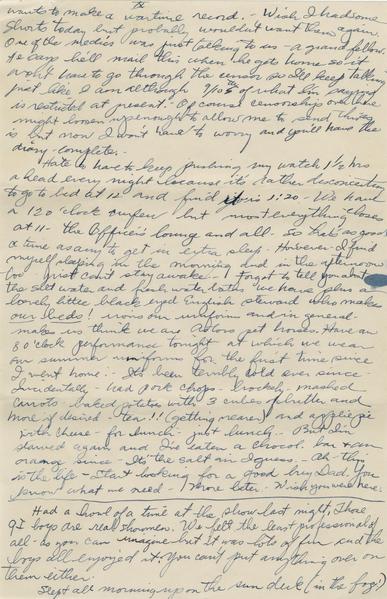 wants to make a wartime record. - Wish I had some
shorts today but probably wouldn't want them again.
One of the medics was just talking to us - a grand fellow.
He says he'll mail this when he gets home so it
won't have to go through the censor so I'll keep talking
just like I am although 9/10 of what I'm saying
is restricted at present. Of course censorship over there
might loosen up enough to allow me to send things
is but now I won't have to worry and you'll have the
diary - complete.
Hate to have to keep pushing my watch 1/2 hrs
ahead every night because it's rather disconcerting
to go to bed at 12 and find it is 1:20 - We have
a 12 o'clock curfew but most everything closes
at 11 - the Officer's lounge and all. So that's as good
a time as any to get in extra sleep. However I find
myself sleeping in the morning and in the afternoon
too! Just can't stay awake - I forgot to tell you about
the salt water and fresh water baths we have plus a
lovely little black eyed English steward who makes
our beds! irons our uniforms and in general
makes us think we are pet horses. Have an
8 o'clock performance tonight at which we wear
our summer uniforms for the first time since
I went home! It's been terribly cold ever since -
Incidentally - had pork chops - mashed
carrots - baked potatoes with 3 cubes of butter and
more if desired - tea!! (getting nearer) and apple pie
with cheese - for lunch - just lunch - But I'm
starved again and I've eaten a chocol. bar + an
orange since - It's the salt air I guess. - Ah - this
is the life - Start looking for a good buy Dad. You
know what we need - More later. - Wish you were here.
Had a howl of a time at the show last night. Those
GI boys are real showmen. We felt the least professional of
all - as you can imagine but it was lots of fun and the
boys all enjoyed it! You can't put anything over on
them either.
Slept all morning up on the sun deck (in the fog!)